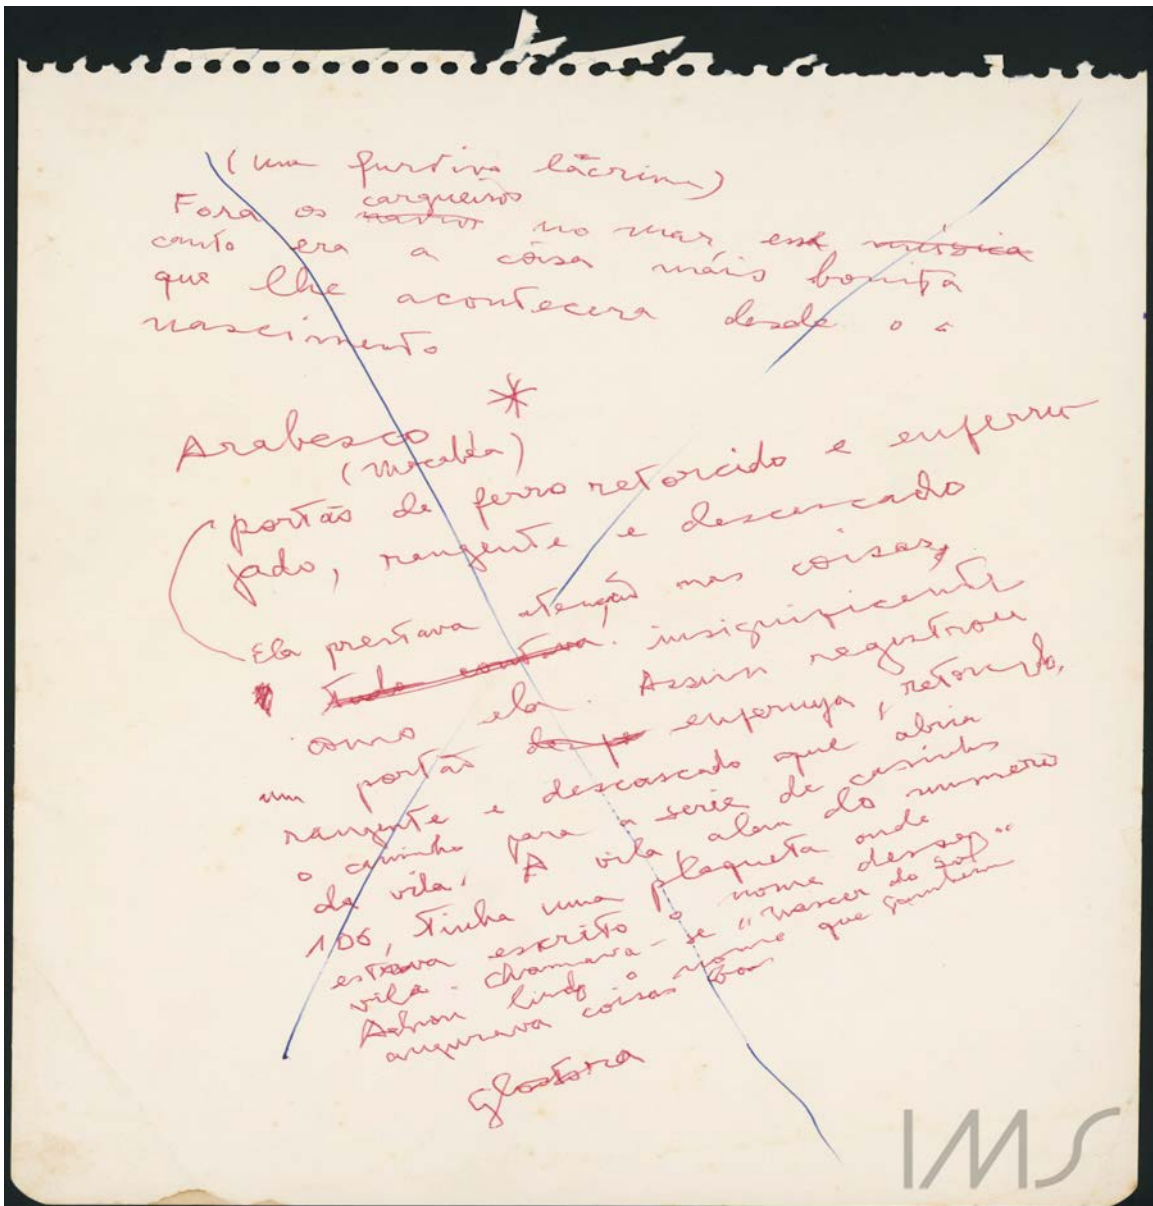 (una furtiva lacrima)
cargueiros
Fora os navios no mar, esse música
canto era a coisa mais bonita
que lhe acontecera desde o
nascimento
*
Arabesco
(Macabéa)
portão de ferro retorcido e enferru-
jado, rangente e descascado
Ela prestava atenção nas coisas,
Tudo contava. insignificantes
como ela. Assim registrou
um portão enferruja, retorcido,
rangente e descascado que abria
o caminho para a serie de casinhas
da vila. A vila, alem do numero
106, tinha uma plaqueta onde
estava escrito o nome dessa
vila. Chamava-se "Nascer do Sol"
Achou lindo o nome que também
augurava coisas boas
Glostora
IMS